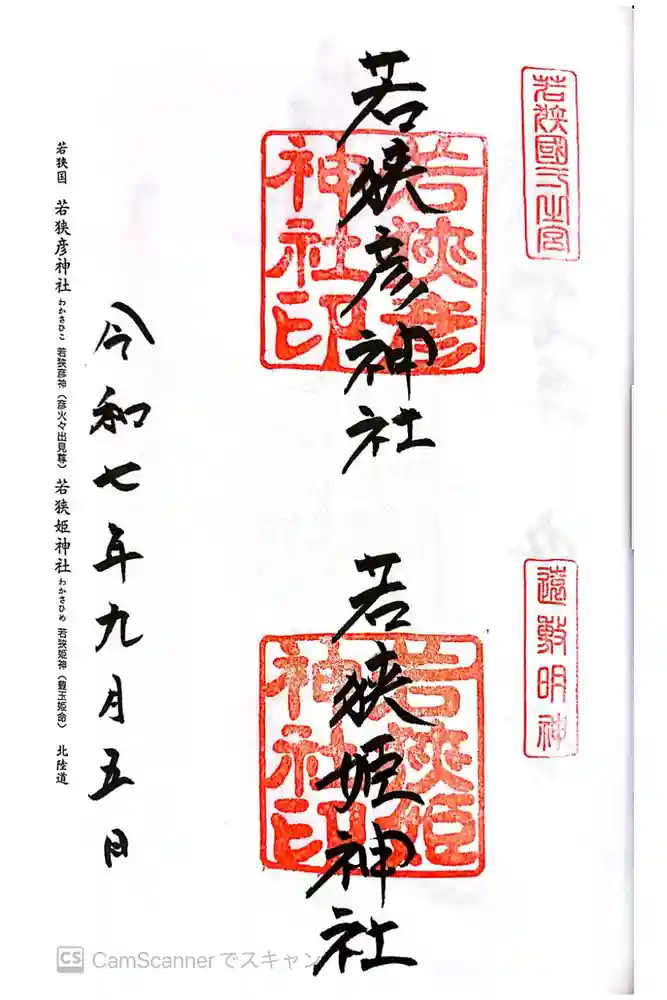 若狹國一之宮
遠敷明神
若狭彦神社
若狹彦
神社印
若狭姫神社
若狹姫
神社印
令和七年九月五日
若狭国 若狭彦神社 わかさひこ 若狭彦神(彦火々出見尊) 若狭姫神社 わかさひめ 若狭姫神(豊玉姫命) 北陸道
CS CamScanner でスキャン